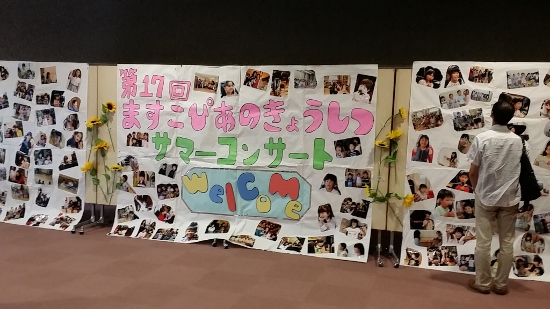 第17回
ますこぴあのきょうしつ
サマーコンサート
Welcome